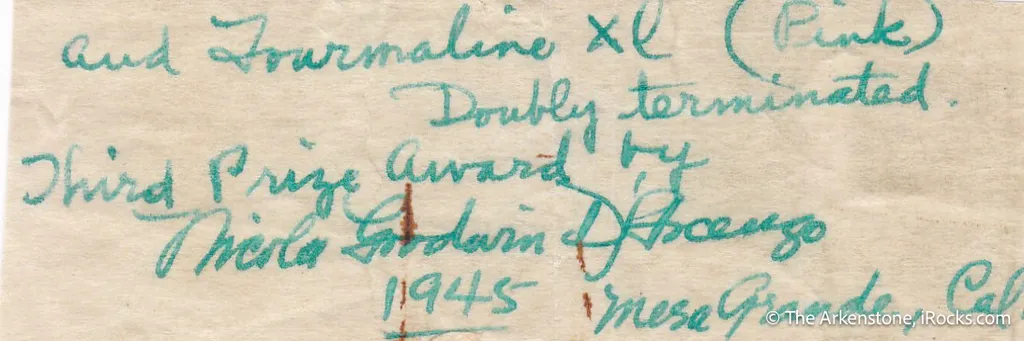 and Tourmaline Xl (Pink)
Doubly terminated.
Third Prize Award by
Nicola Goodwin D'Ascenzo
1945 Mesa Grande, Cal
© The Arkenstone, iRocks.com